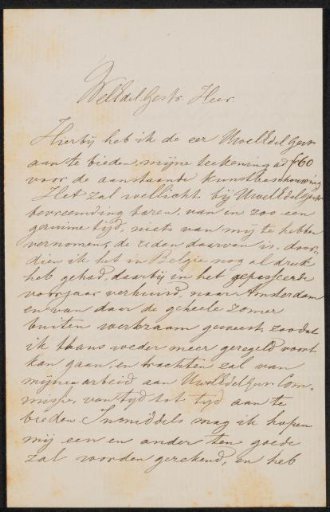 WelEdel Gestr. Heer
Hierbij heb ik de eer UwelEdel Gestr
aan te bieden, mijne teekening ad f60
voor de aanstaande Kunstbeschouwing
Het zal wellicht bij UwelEdelGestr
bevreemding baren, van in zoo een
geruime tijd, niets van mij te hebben
vernomen, de reden daarvan is, door
dien ik het in België nog al druk
heb gehad, daarbij in het gepasseerde
voorjaar verhuisd, naar Amsterdam
en van daar de geheele zomer
buiten werkzaam geweest zoodat
ik thans weder meer geregeld voort
kan gaan, en trachten zal van
mijnen arbeid aan UwelEdelGestr
van tijd tot tijd aan te
bieden Inmiddels mag ik hopen
mij een en ander ten goede
zal worden gerekend, en heb